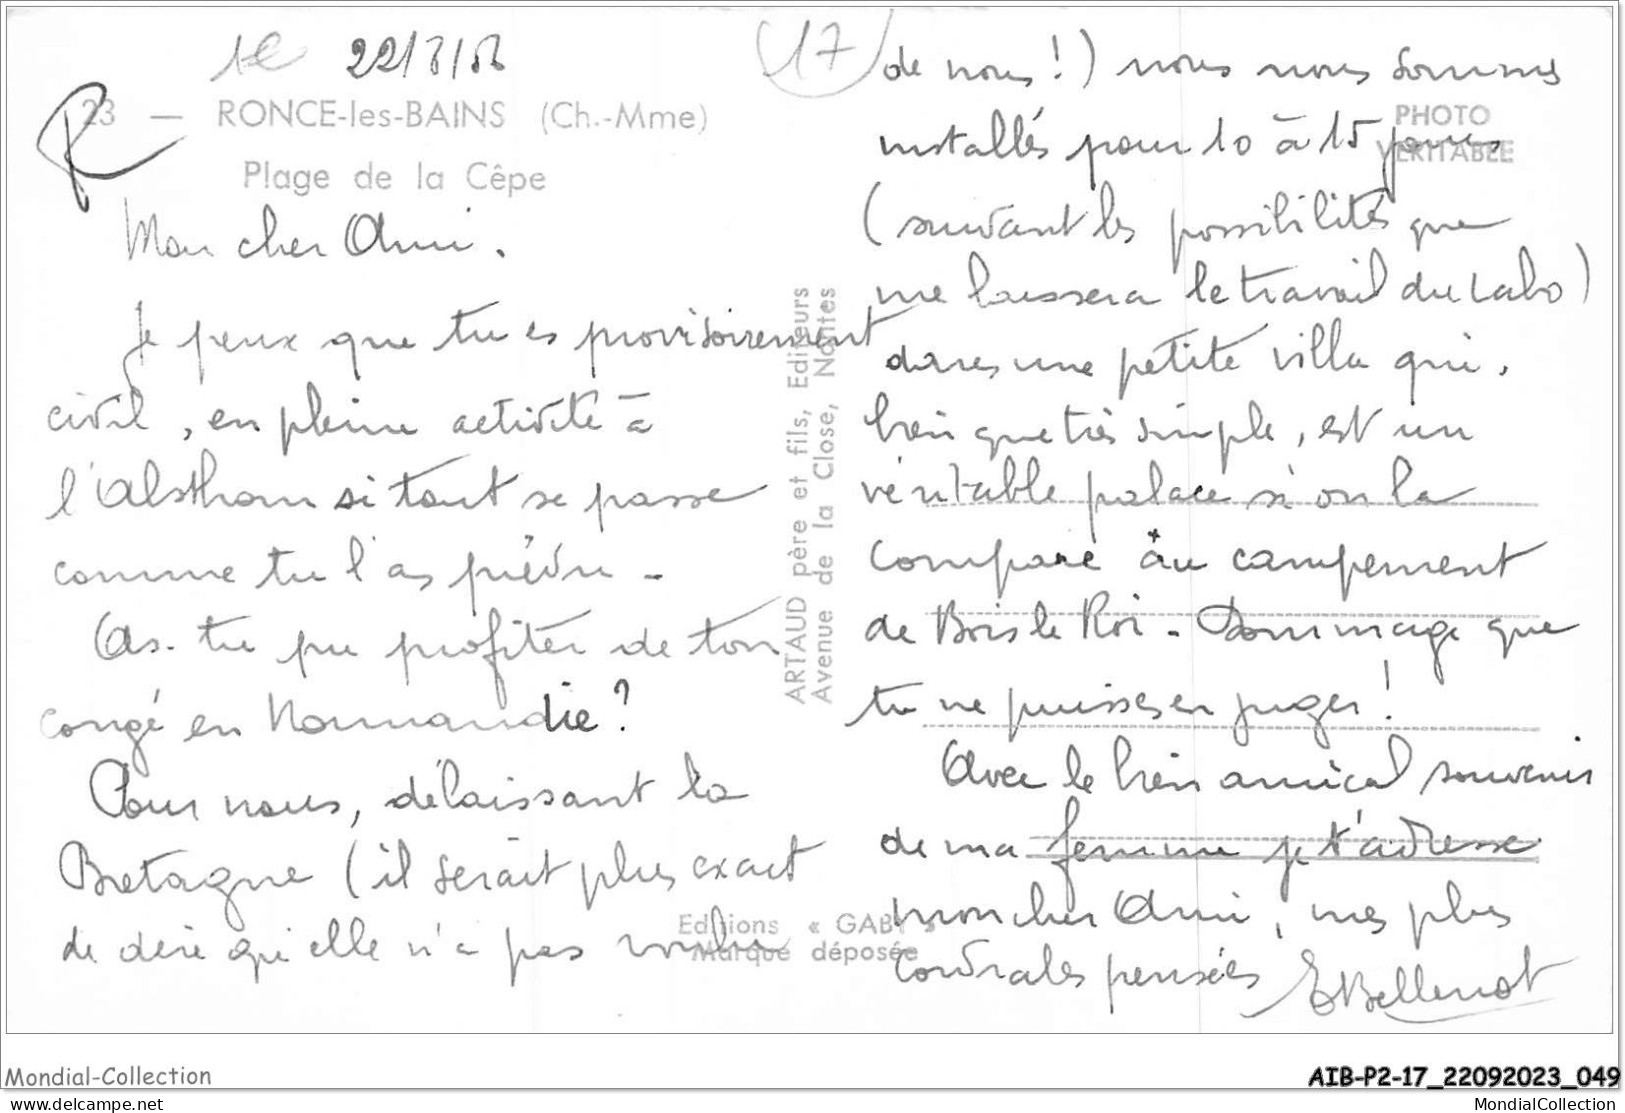 22/8/58
17
R
23 — RONCE-les-BAINS (Ch.-Mme)
Plage de la Cêpe
Mon cher Ami.
Je peux que tu es provisoirement
civil, en pleine activité à
l'Alsthom si tout se passe
comme tu l'as prévu -
As-tu pu profiter de ton
congé en Normandie ?
Pour nous, délaissant la
Bretagne (il serait plus exact
de dire qu'elle n'a pas voulu
de nous !) nous nous sommes
installés pour 10 à 15 jours
(suivant les possibilités que
me laissera le travail du Labo)
dans une petite villa qui,
bien que très simple, est un
véritable palace si on la
compare au campement
de Bois le Roi - Dommage que
tu ne puisses en juger !
Avec le bien amical souvenir
de ma femme je t'adresse
mon cher Ami, mes plus
cordiales pensées
EBellenot
PHOTO
VERITABLE
ARTAUD père et fils, Editeurs
Avenue de la Close, Nantes
Editions « GABY »
Marque déposée
Mondial-Collection
AIB-P2-17_22092023_049
www.delcampe.net
MondialCollection